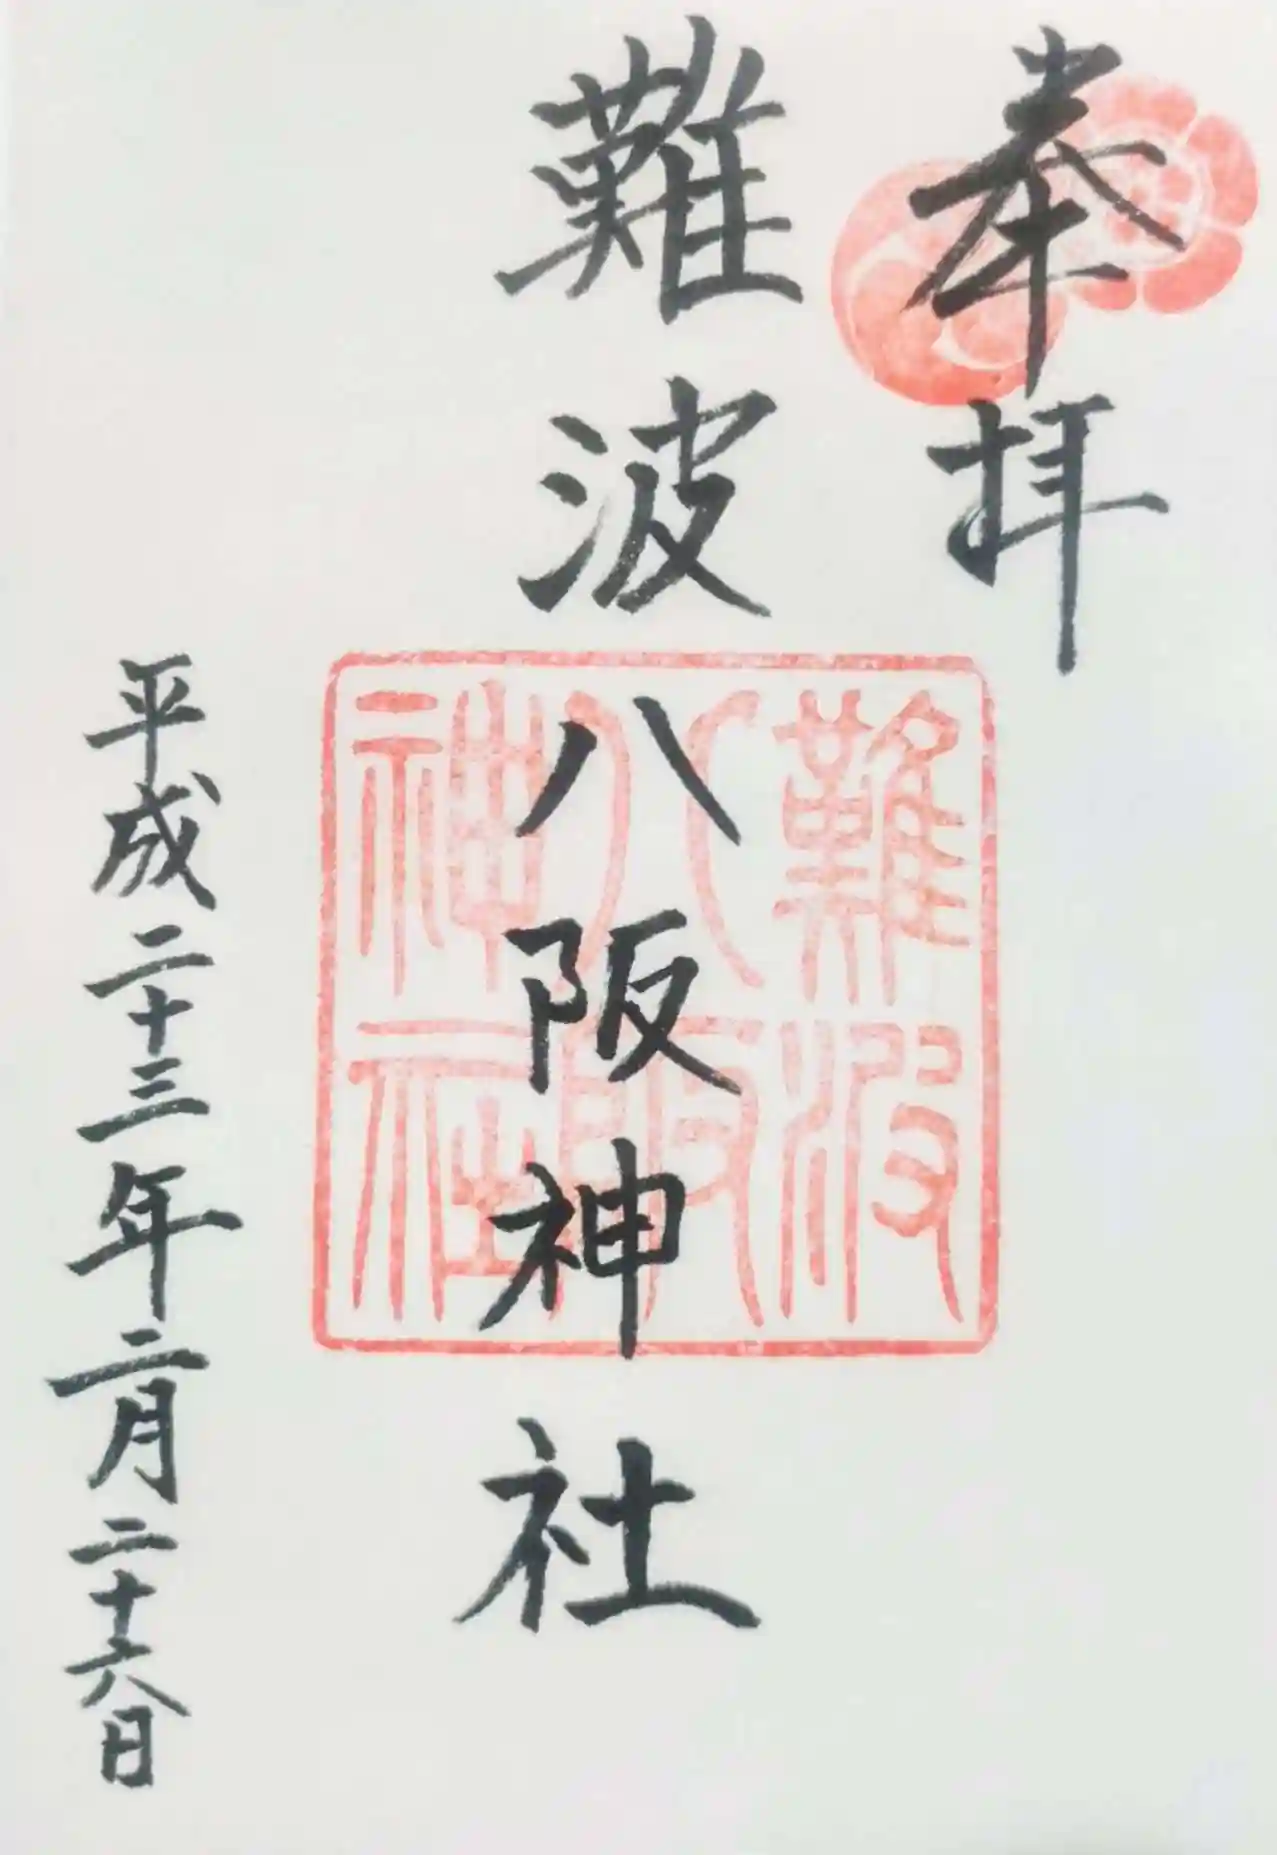 奉拝
難波八阪神社
難波
八阪
神社
平成二十三年二月二十六日